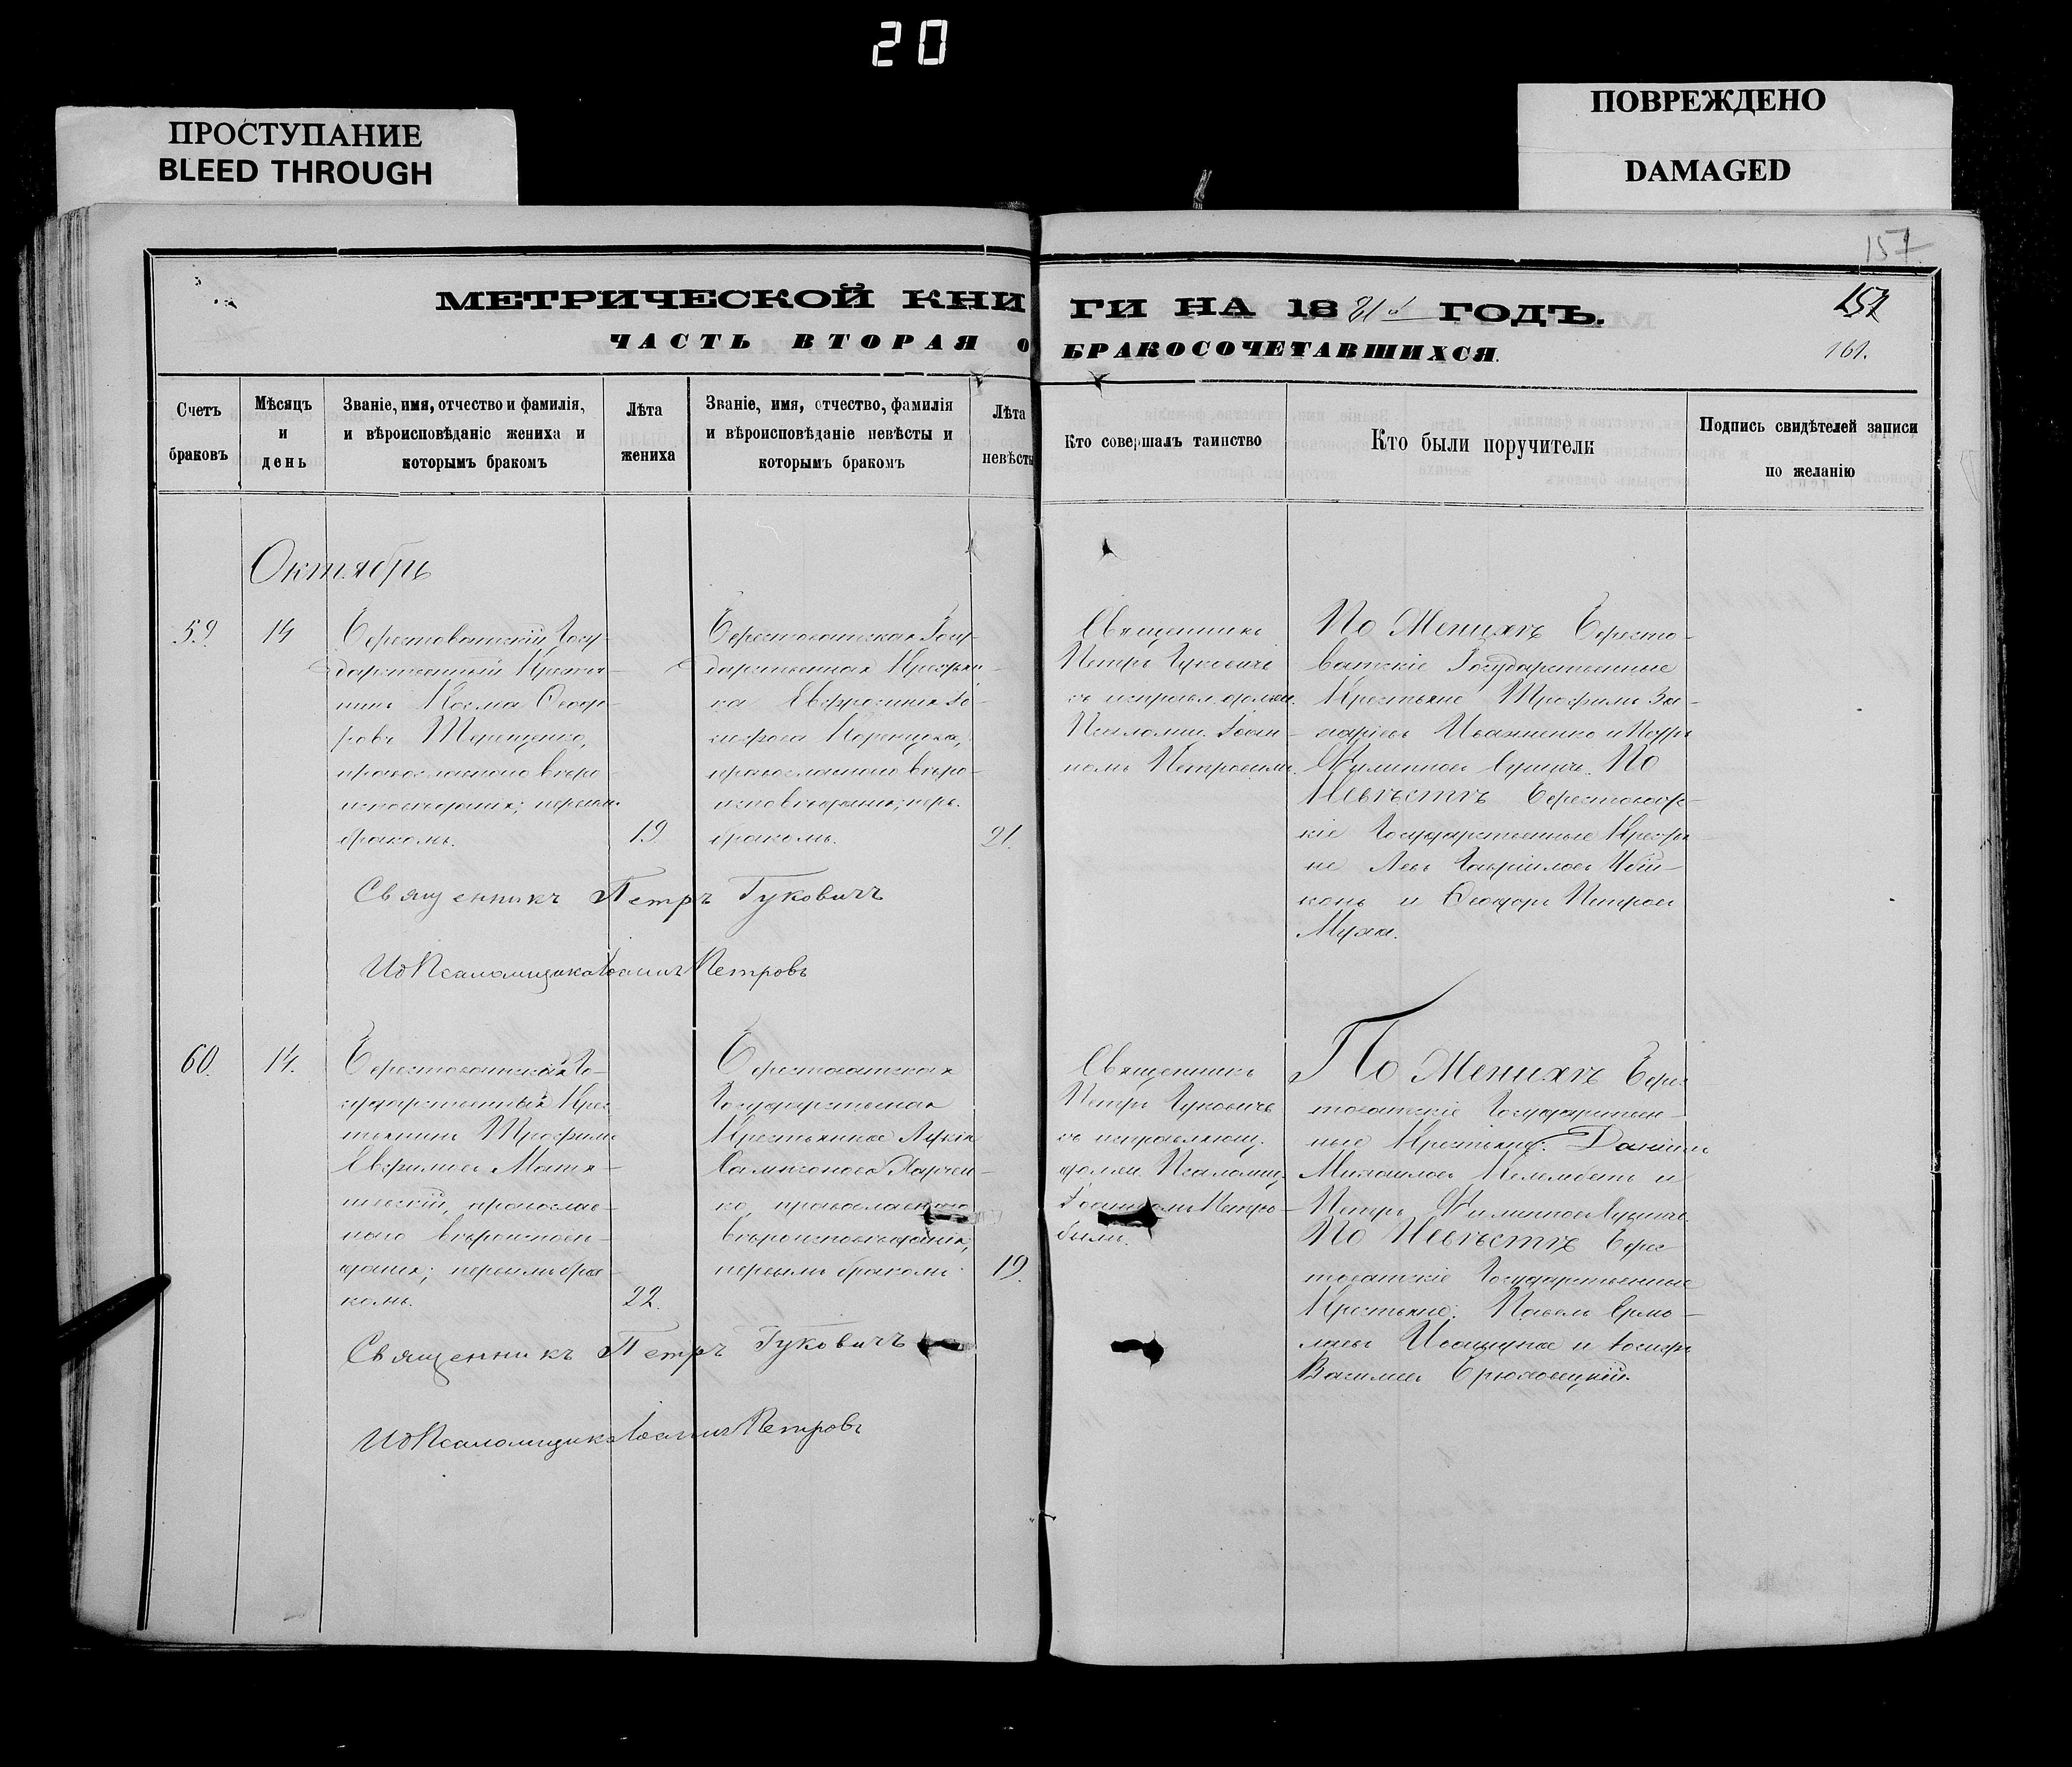 20
ПРОСТУПАНИЕ
BLEED THROUGH
ПОВРЕЖДЕНО
DAMAGED
157
МЕТРИЧЕСКОЙ КНИ ГИ НА 1881й ГОДЪ.
161.
ЧАСТЬ ВТОРАЯ О БРАКОСОЧЕТАВШИХСЯ.
Счетъ
браковъ
Мѣсяцъ
и
день
Званіе, имя, отчество и фамилія,
и вѣроисповѣданіе жениха и
которымъ бракомъ
Лѣта
жениха
Званіе, имя, отчество, фамилія
и вѣроисповѣданіе невѣсты и
которымъ бракомъ
Лѣта
невѣсты
Кто совершалъ таинство
Кто были поручители
Подпись свидѣтелей записи
по желанію
Октябрь
59.
14
Берестоватскій Госу-
дарственный Крестья-
нинъ Косма Ѳеодо-
ровъ Терещенко,
православнаго вѣро-
исповѣданія; первымъ
бракомъ.
19
Берестоватская Госу-
дарственная Крестьян-
ка Евфросинія
православнаго вѣро-
исповѣданія; перв.
бракомъ.
21.
Священникъ
Петръ Гуковичъ
съ исправл. должн.
Псаломщ. Іоан-
номъ Петровымъ.
По Женихѣ Бересто-
ватскіе Государственные
Крестьяне Трофимъ За-
харіевъ Иваненко и Петръ
Филипповъ По
Невѣстѣ Берестоват-
скіе Государственные Крестья-
не Левъ Гавріиловъ
и Ѳеодоръ Петровъ
Муха.
Священникъ Петръ Гуковичъ
ИдПсаломщика Іоаннъ Петровъ
60.
14.
Берестоватскій Го-
сударственный Крес-
тьянинъ Трофимъ
Евфимовъ
православ-
наго вѣроиспов-
ѣданія; первымъ бра-
комъ.
22.
Берестоватская
Государственная
Крестьянка Лукія
Сампсонова Харчен-
ко, православнаго
вѣроисповѣданія,
первымъ бракомъ
19.
Священникъ
Петръ Гуковичъ
съ исправляющ.
должн. Псаломщ.
Іоанномъ Петро-
вымъ.
По Женихѣ Берес-
товатскіе Государствен-
ные Крестьяне: Даніилъ
Михаиловъ и
Петръ Филипповъ
По Невѣстѣ Берес-
товатскіе Государственные
Крестьяне: Павелъ Ермо-
лаевъ и Іосифъ
Василіевъ Брюховецкій.
Священникъ Петръ Гуковичъ
ИдПсаломщика Іоаннъ Петровъ